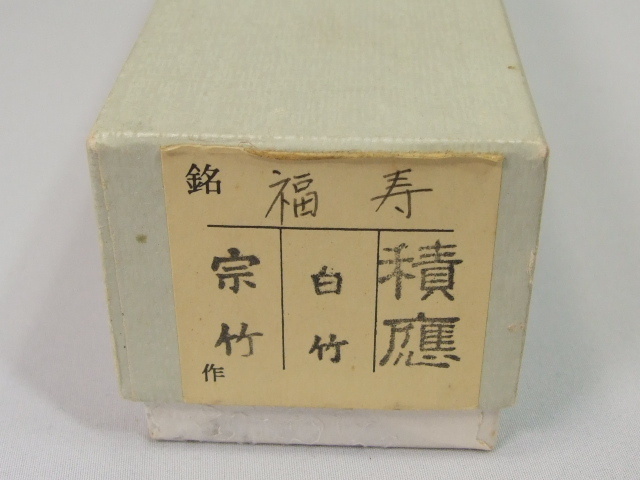 銘 福寿
積應
白竹
宗竹作